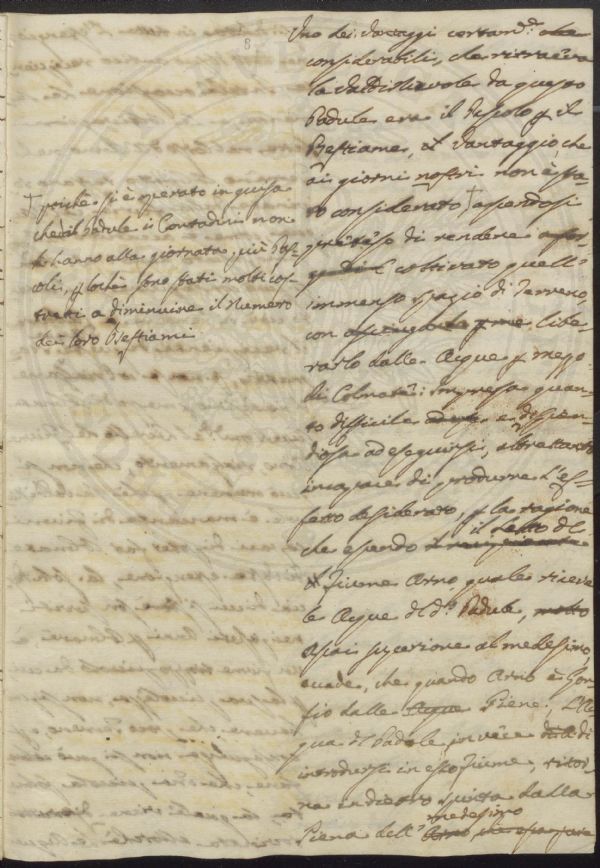 8
Uno dei Vantaggi certam.te che
considerabili, che ritraeva
la Valdinievole da questo
Padule era il Pascolo p il
Bestiame, Vantaggio, che
ài giorni nostri non è sta-
to considerato † essendosi
preteso di rendere
coltivato quell'
immenso spazio di Terreno,
con asciugarlo p me libe-
rarlo dalle Acque p mezzo
di Colmate: Impresa quan-
to difficile e dispen-
diosa ad eseguirsi, altrettanto
incapace di produrre l'ef-
fetto desiderato, p la ragione
che essendo il letto del
Fiume Arno quale riceve
le Acque di d.o Padule, molto
assai superiore al medesimo,
accade, che quando Arno è Gon-
fio dalle Acque Piene, l'Ac-
qua del Padule, in vece di
introdursi in esso Fiume, ritor-
na indietro spinta dalla
Piena dell' medesimo Arno, che
† poichè si è operato in guisa
che il Padule i Contadini non
hanno alla giornata più Pas-
coli, p lochè sono stati molti cos-
tretti a diminuire il Numero
dei loro Bestiami